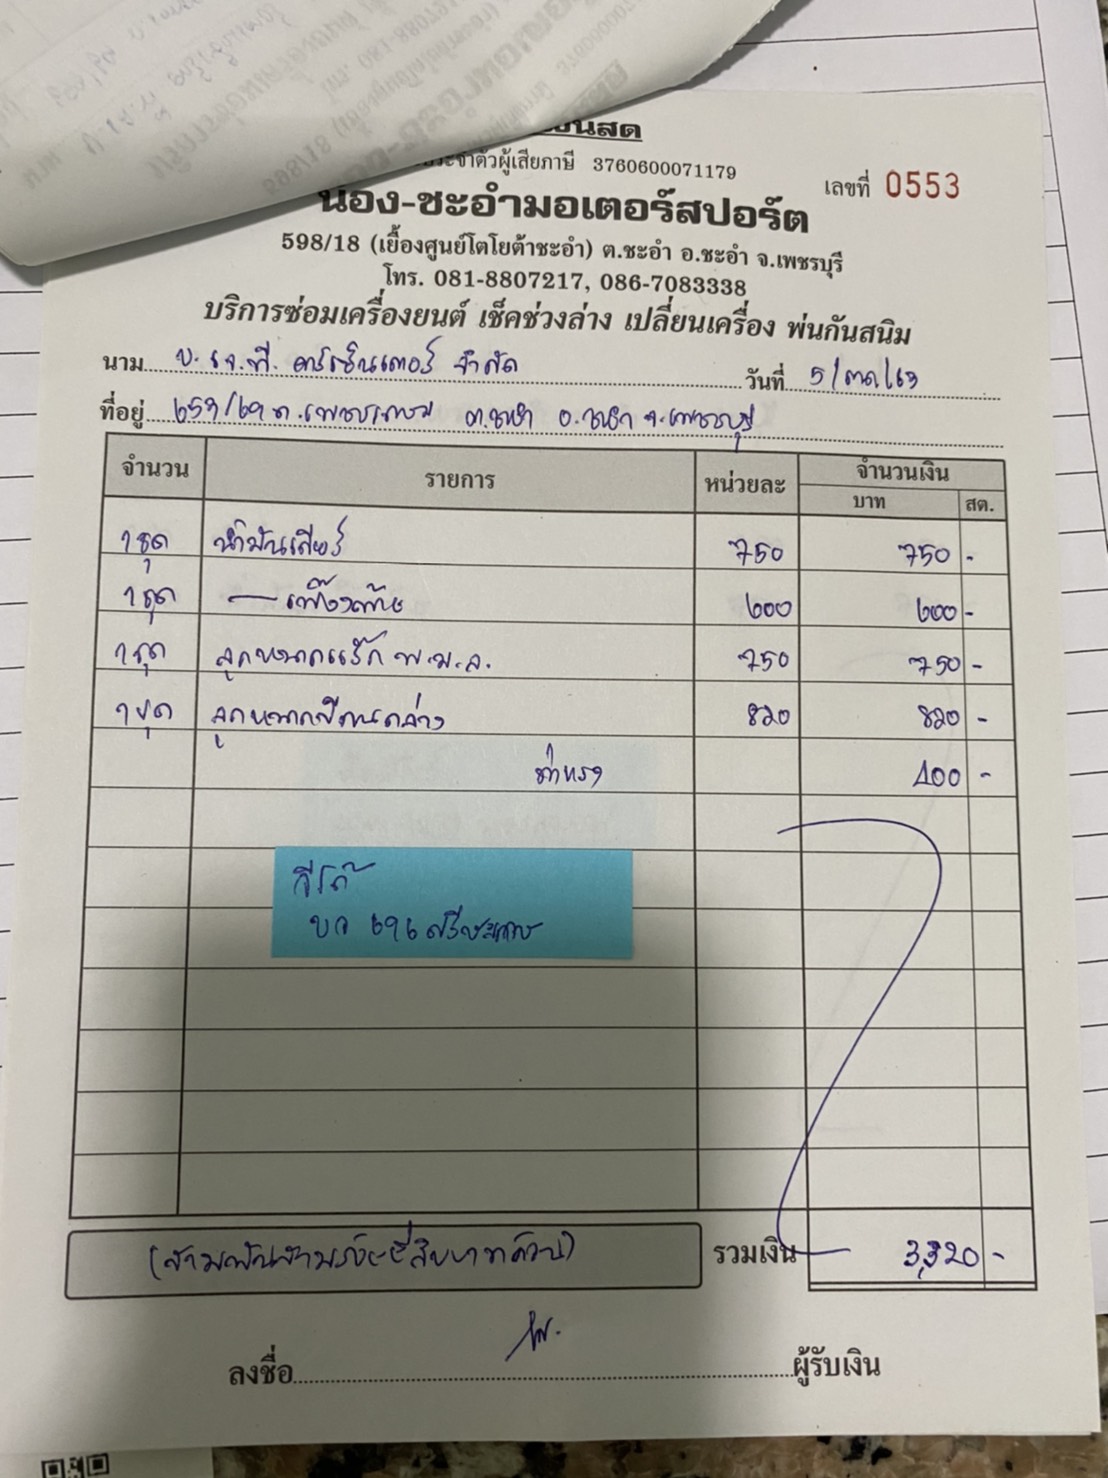 เงินสด
ประจำตัวผู้เสียภาษี 3760600071179
เลขที่ 0553
น้อง-ชะอำมอเตอร์สปอร์ต
598/18 (เยื้องศูนย์โตโยต้าชะอำ) ต.ชะอำ อ.ชะอำ จ.เพชรบุรี
โทร. 081-8807217, 086-7083338
บริการซ่อมเครื่องยนต์ เช็คช่วงล่าง เปลี่ยนเครื่อง พ่นกันสนิม
นาม บ. เจ.ที. คาร์เซ็นเตอร์ จำกัด วันที่ 5/ /63
ที่อยู่ ถ.เพชรเกษม ต.ชะอำ อ.ชะอำ จ.เพชรบุรี
จำนวน รายการ หน่วยละ จำนวนเงิน
บาท สต.
1 ชุด น้ำมันเกียร์ 750 750 -
1 ชุด — เฟืองท้าย 600 600 -
1 ชุด ลูกหมากแร็ค พ.ม.ล. 750 750 -
1 ชุด ลูกหมากปีกนกล่าง 820 820 -
ค่าแรง 400 -
วีโก้
บว 696 ศรีสะเกษ
(สามพันสามร้อยยี่สิบบาทถ้วน) รวมเงิน 3,320 -
ลงชื่อ ผู้รับเงิน